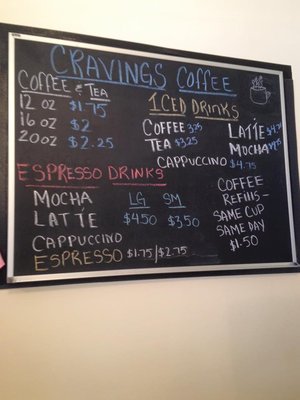 CRAVINGS COFFEE
COFFEE & TEA
12 oz $1.75
16 oz $2
20oz $2.25
ICED DRINKS
COFFEE 3.75
TEA $3.25
LATTE
MOCHA
CAPPUCCINO $4.75
ESPRESSO DRINKS
LG SM
MOCHA
LATTE $4.50 $3.50
CAPPUCCINO
ESPRESSO $1.75/$2.75
COFFEE
REFILLS -
SAME CUP
SAME DAY
$1.50